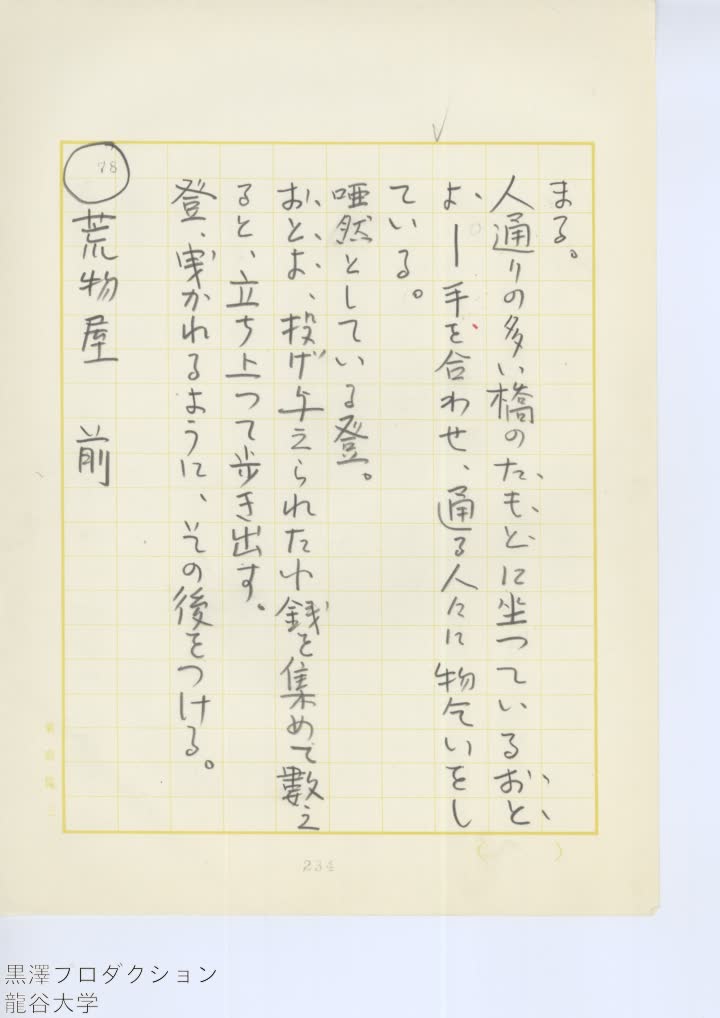 まる。
人通りの多い橋のたもとに坐つているおと
よ、ー手を合わせ、通る人々に物乞いをし
ている。
唖然としている登。
おとよ、投げ与えられた小銭を集めて數え
ると、立ち上つて歩き出す。
登、曳かれるように、その後をつける。
78
荒物屋 前
234
黒澤プロダクション
龍谷大学